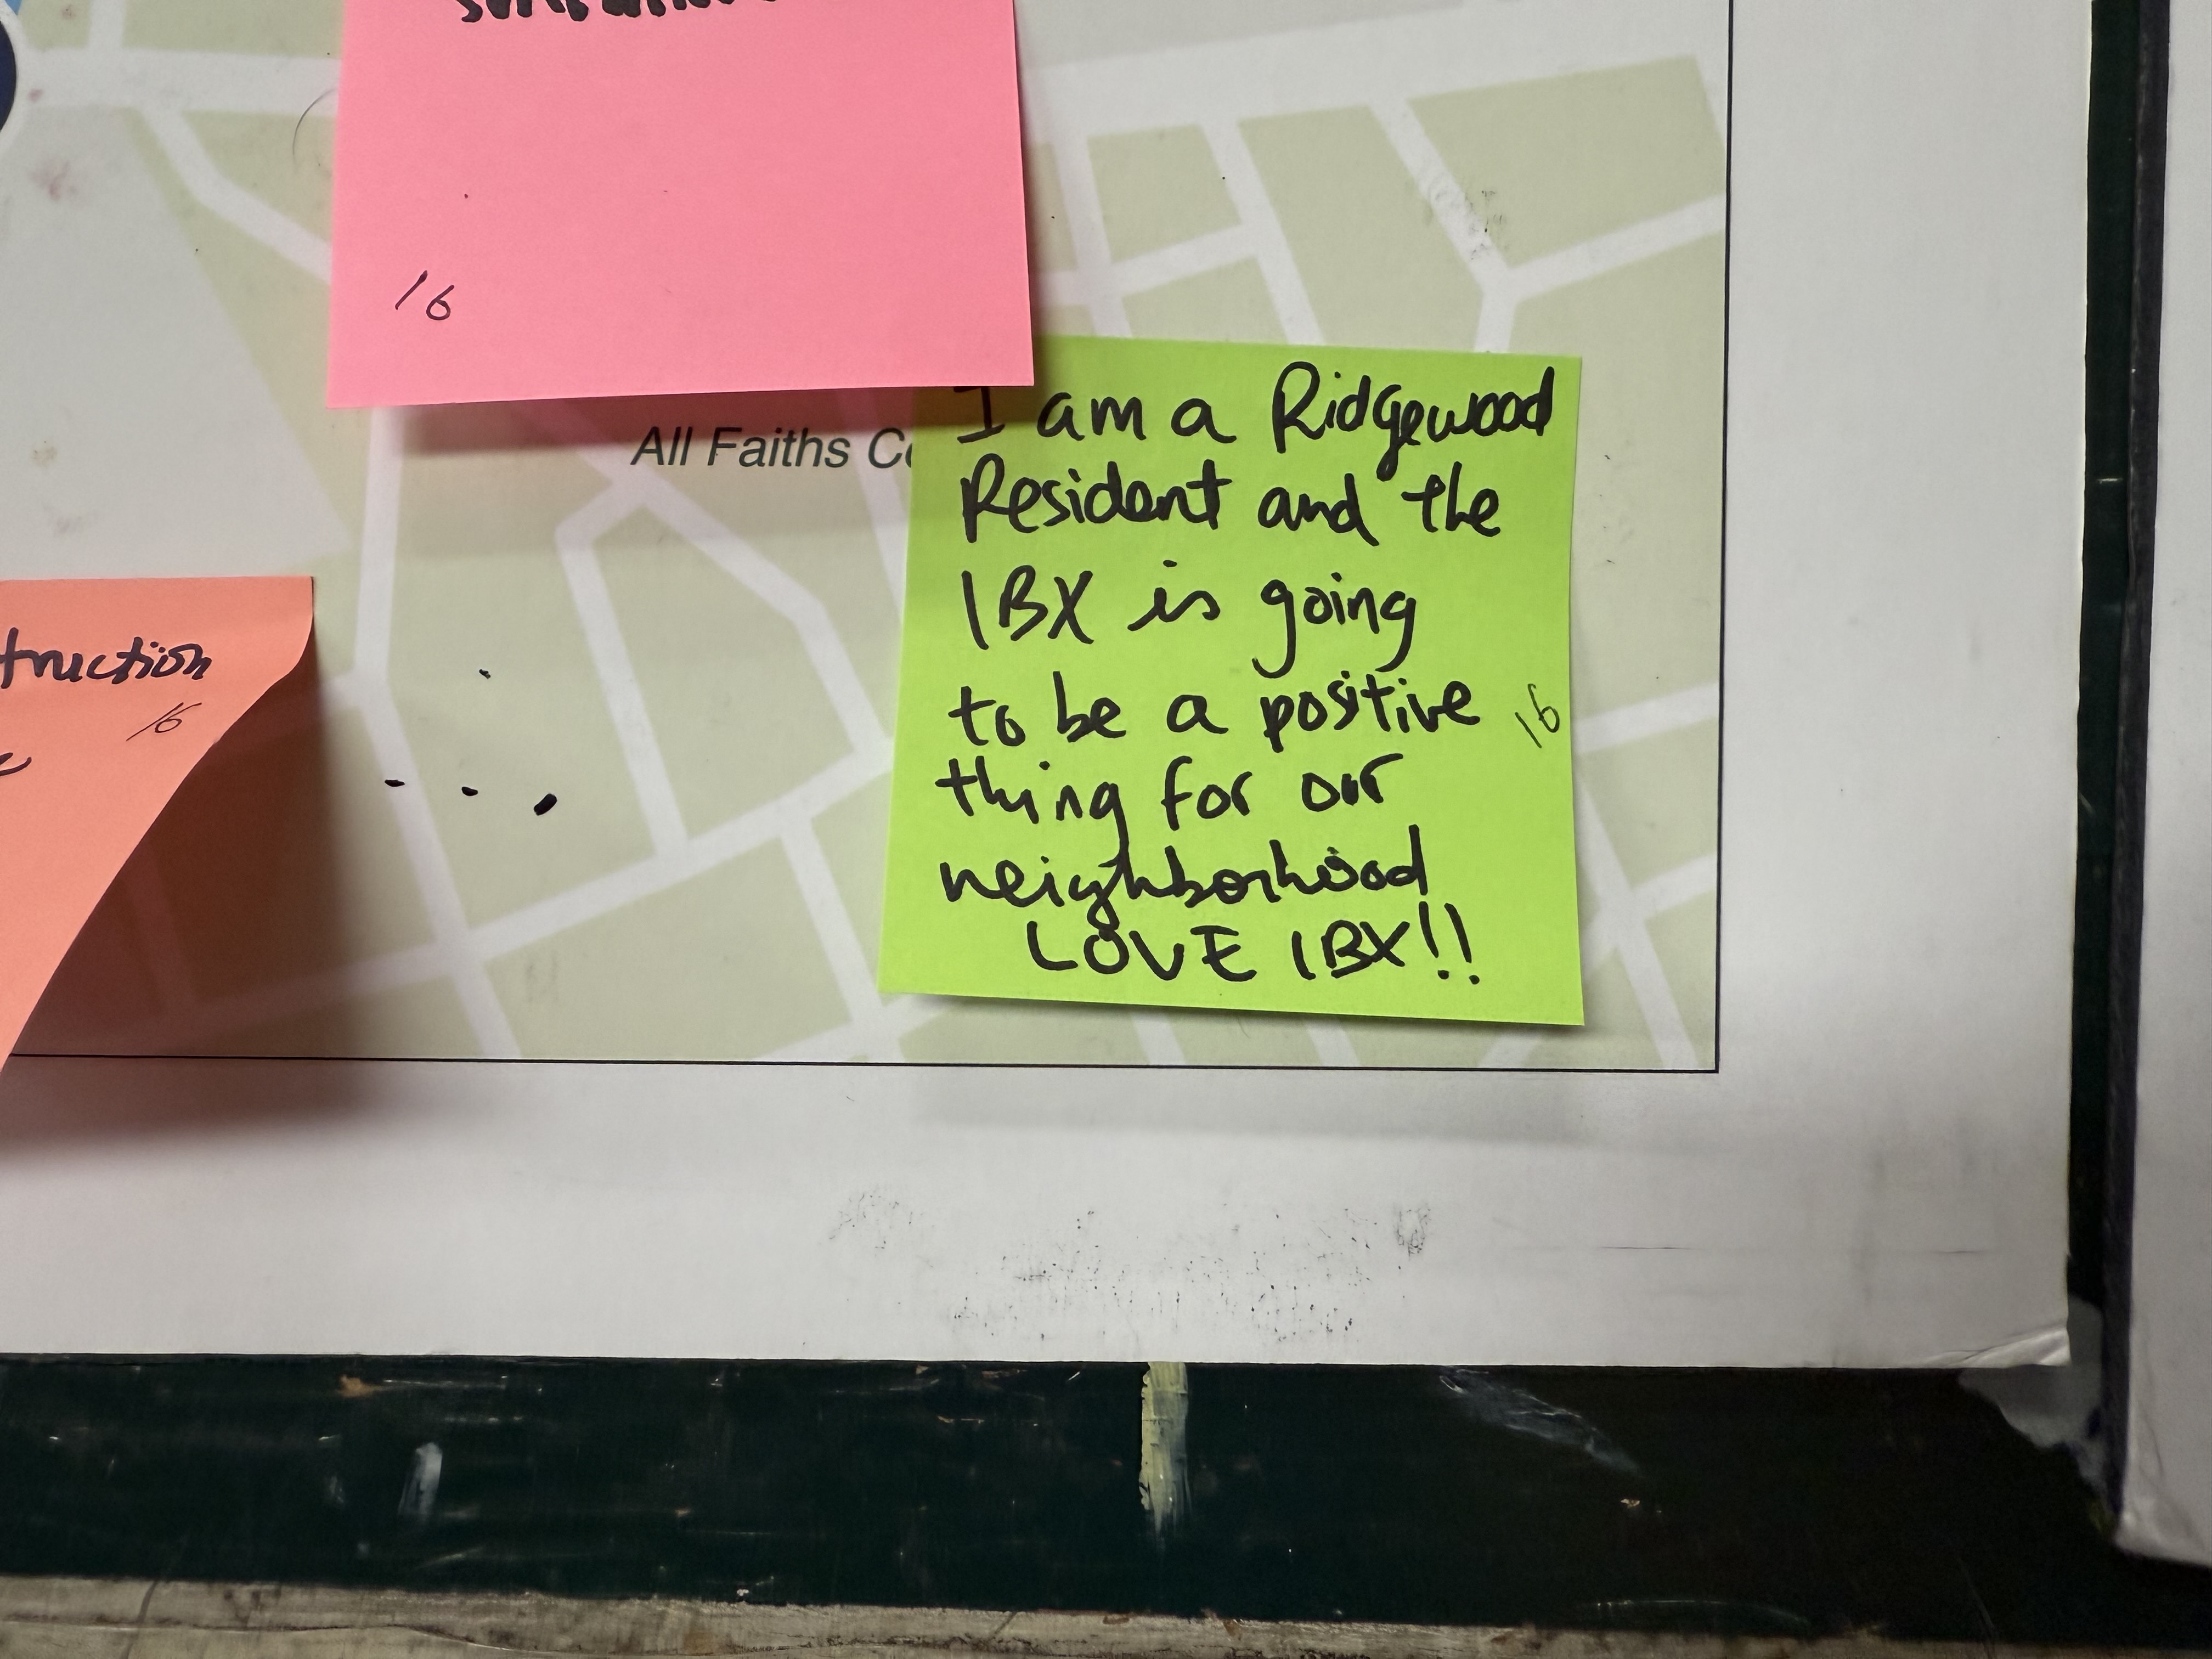 16
All Faiths
I am a Ridgewood
Resident and the
IBX is going
to be a positive
16
thing for our
neighborhood
LOVE IBX!!
truction
16